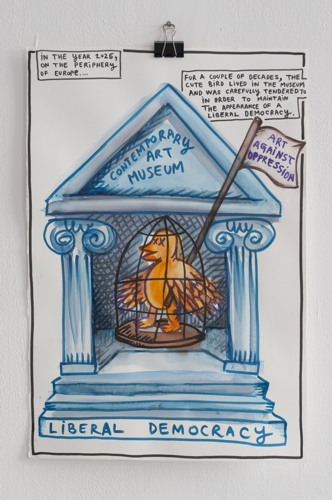 IN THE YEAR 2025,
ON THE PERIPHERY
OF EUROPE....
FOR A COUPLE OF DECADES, THE
CUTE BIRD LIVED IN THE MUSEUM
AND WAS CAREFULLY TENDERED TO
IN ORDER TO MAINTAIN
THE APPEARANCE OF A
LIBERAL DEMOCRACY.
ART
AGAINST
OPPRESSION
CONTEMPORARY
ART
MUSEUM
LIBERAL DEMOCRACY